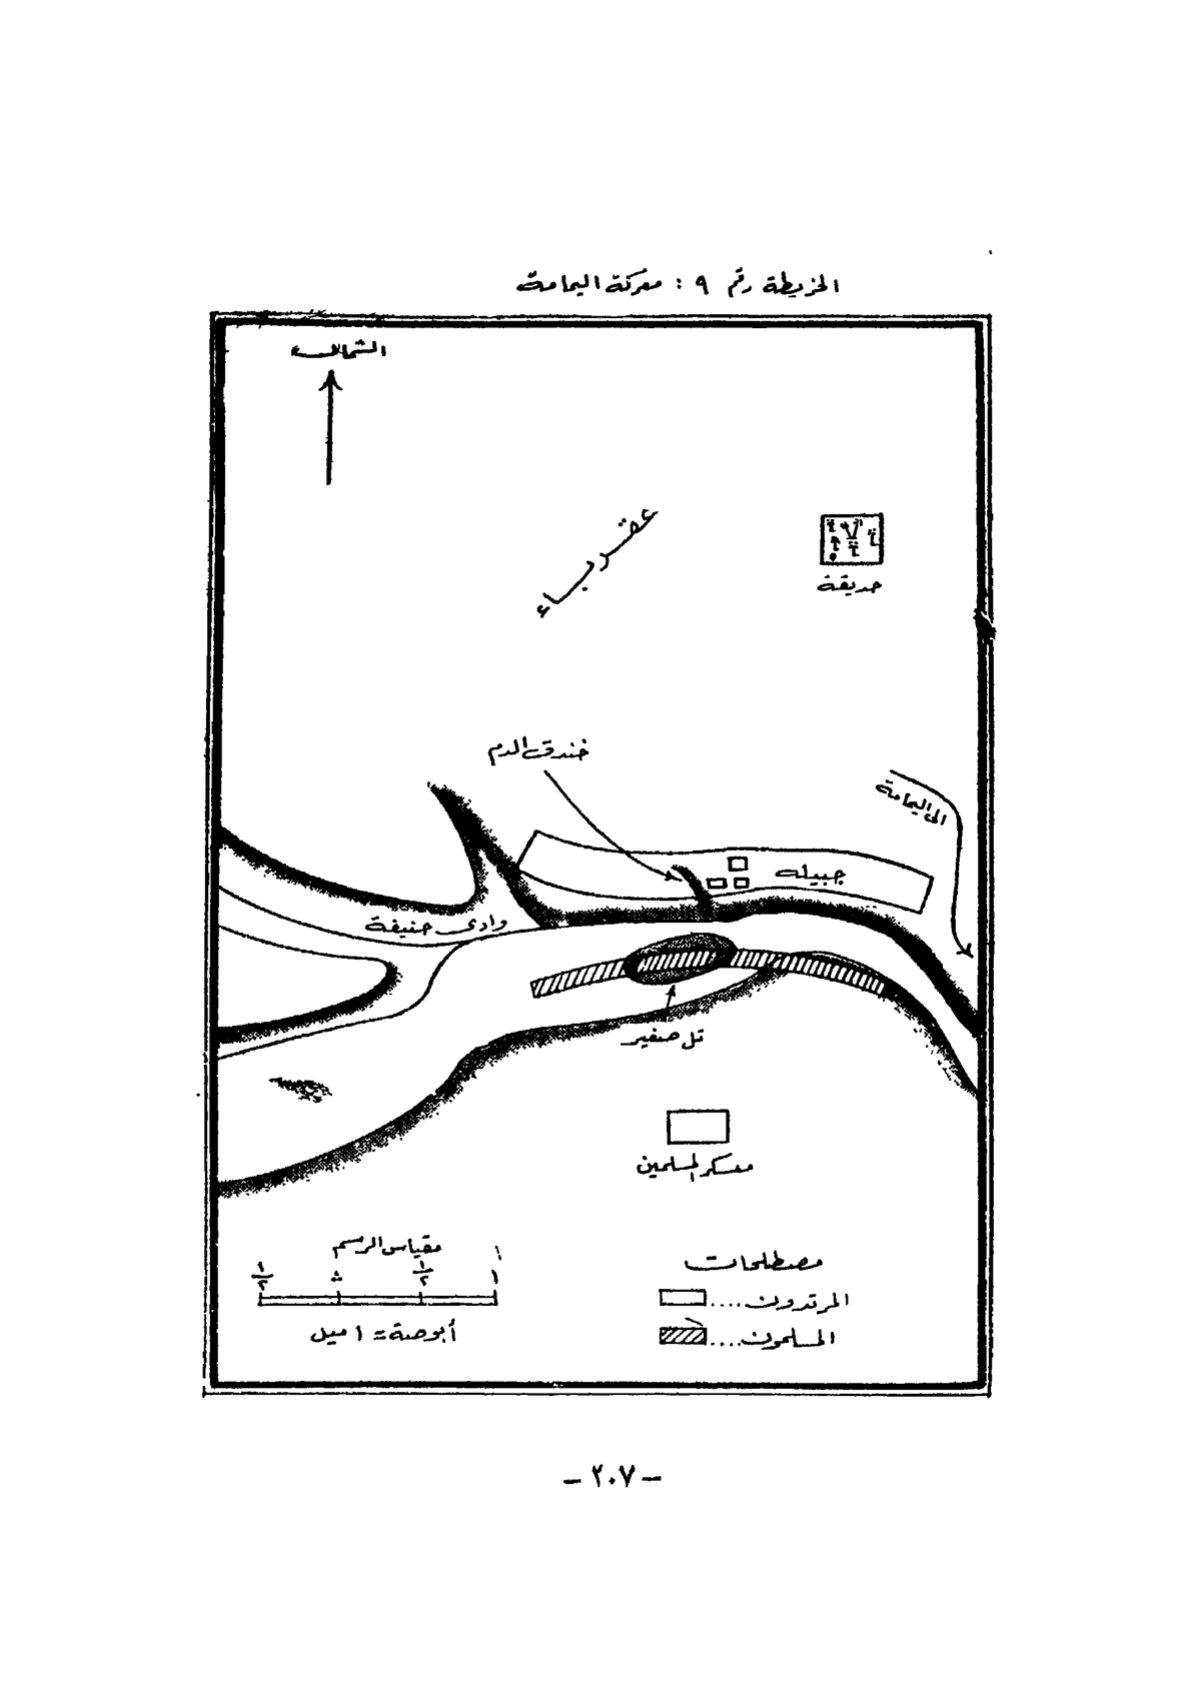 الخريطة رقم ٩ : معركة اليمامة
الشمال
عقرباء
حديقة
خندق الدم
الى اليمامة
جبيله
وادى حنيفة
تل صغير
معسكر المسلمين
مقياس الرسم
١/٢ ٥ ١/٢ ١
أبوصة = ١ ميل
مصطلحات
المرتدون....
المسلمون....
- ٢٠٧ -